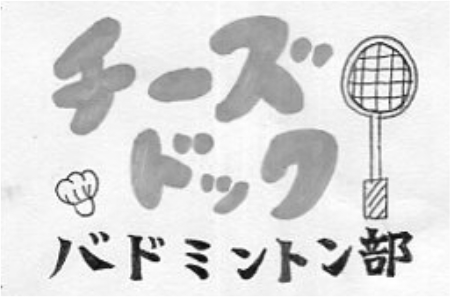 チーズ
ドック
バドミントン部